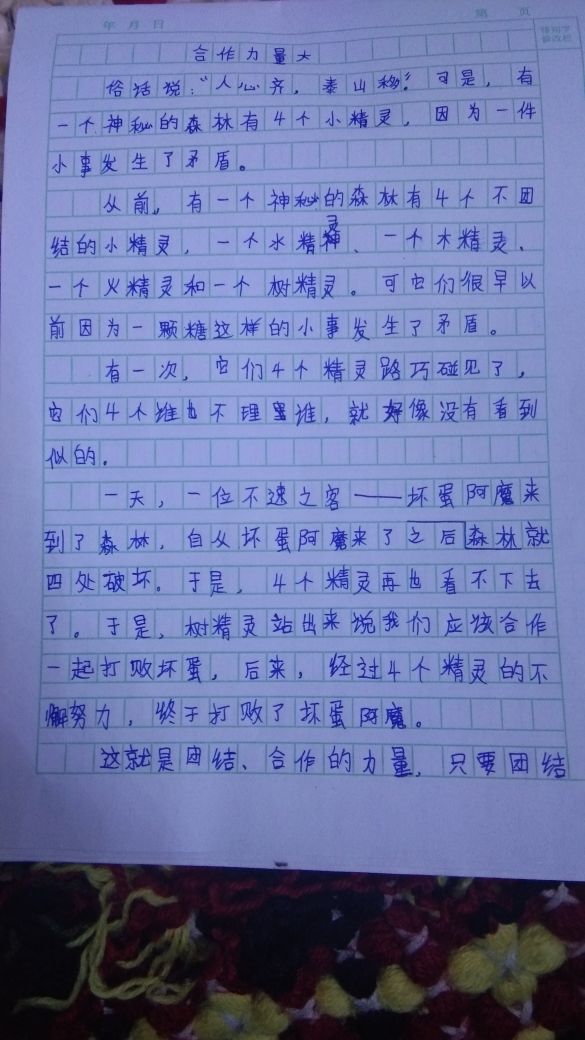 年 月 日
第 页
合作力量大
俗话说:“人心齐,泰山移。”可是,有
一个神秘的森林有4个小精灵,因为一件
小事发生了矛盾。
从前,有一个神秘的森林有4个不团
结的小精灵,一个水精灵、一个木精灵、
一个火精灵和一个树精灵。可它们很早以
前因为一颗糖这样的小事发生了矛盾。
有一次,它们4个精灵路巧碰见了,
它们4个谁也不理谁,就好像没有看到
似的。
一天,一位不速之客——坏蛋阿魔来
到了森林,自从坏蛋阿魔来了之后森林就
四处破坏。于是,4个精灵再也看不下去
了。于是,树精灵站出来说我们应该合作
一起打败坏蛋,后来,经过4个精灵的不
懈努力,终于打败了坏蛋阿魔。
这就是团结、合作的力量,只要团结